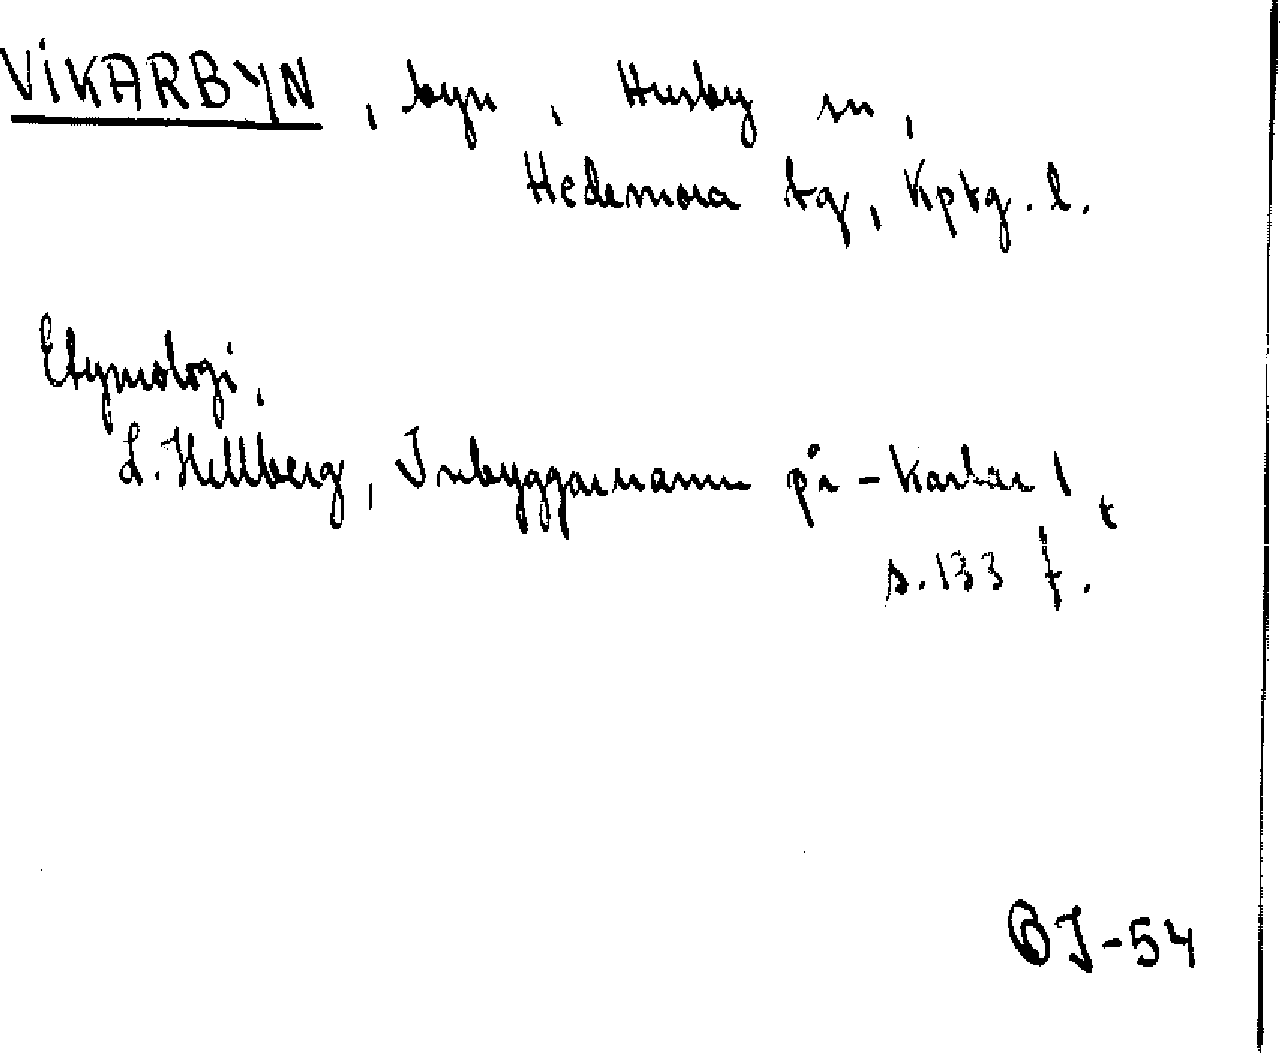 VIKARBYN, byn, Husby sn,
Hedemora tg, Kptg. l.
Etymologi.
L. Hellberg, Inbyggarnamn på -karlar 1,
s. 133 f.
BJ-54